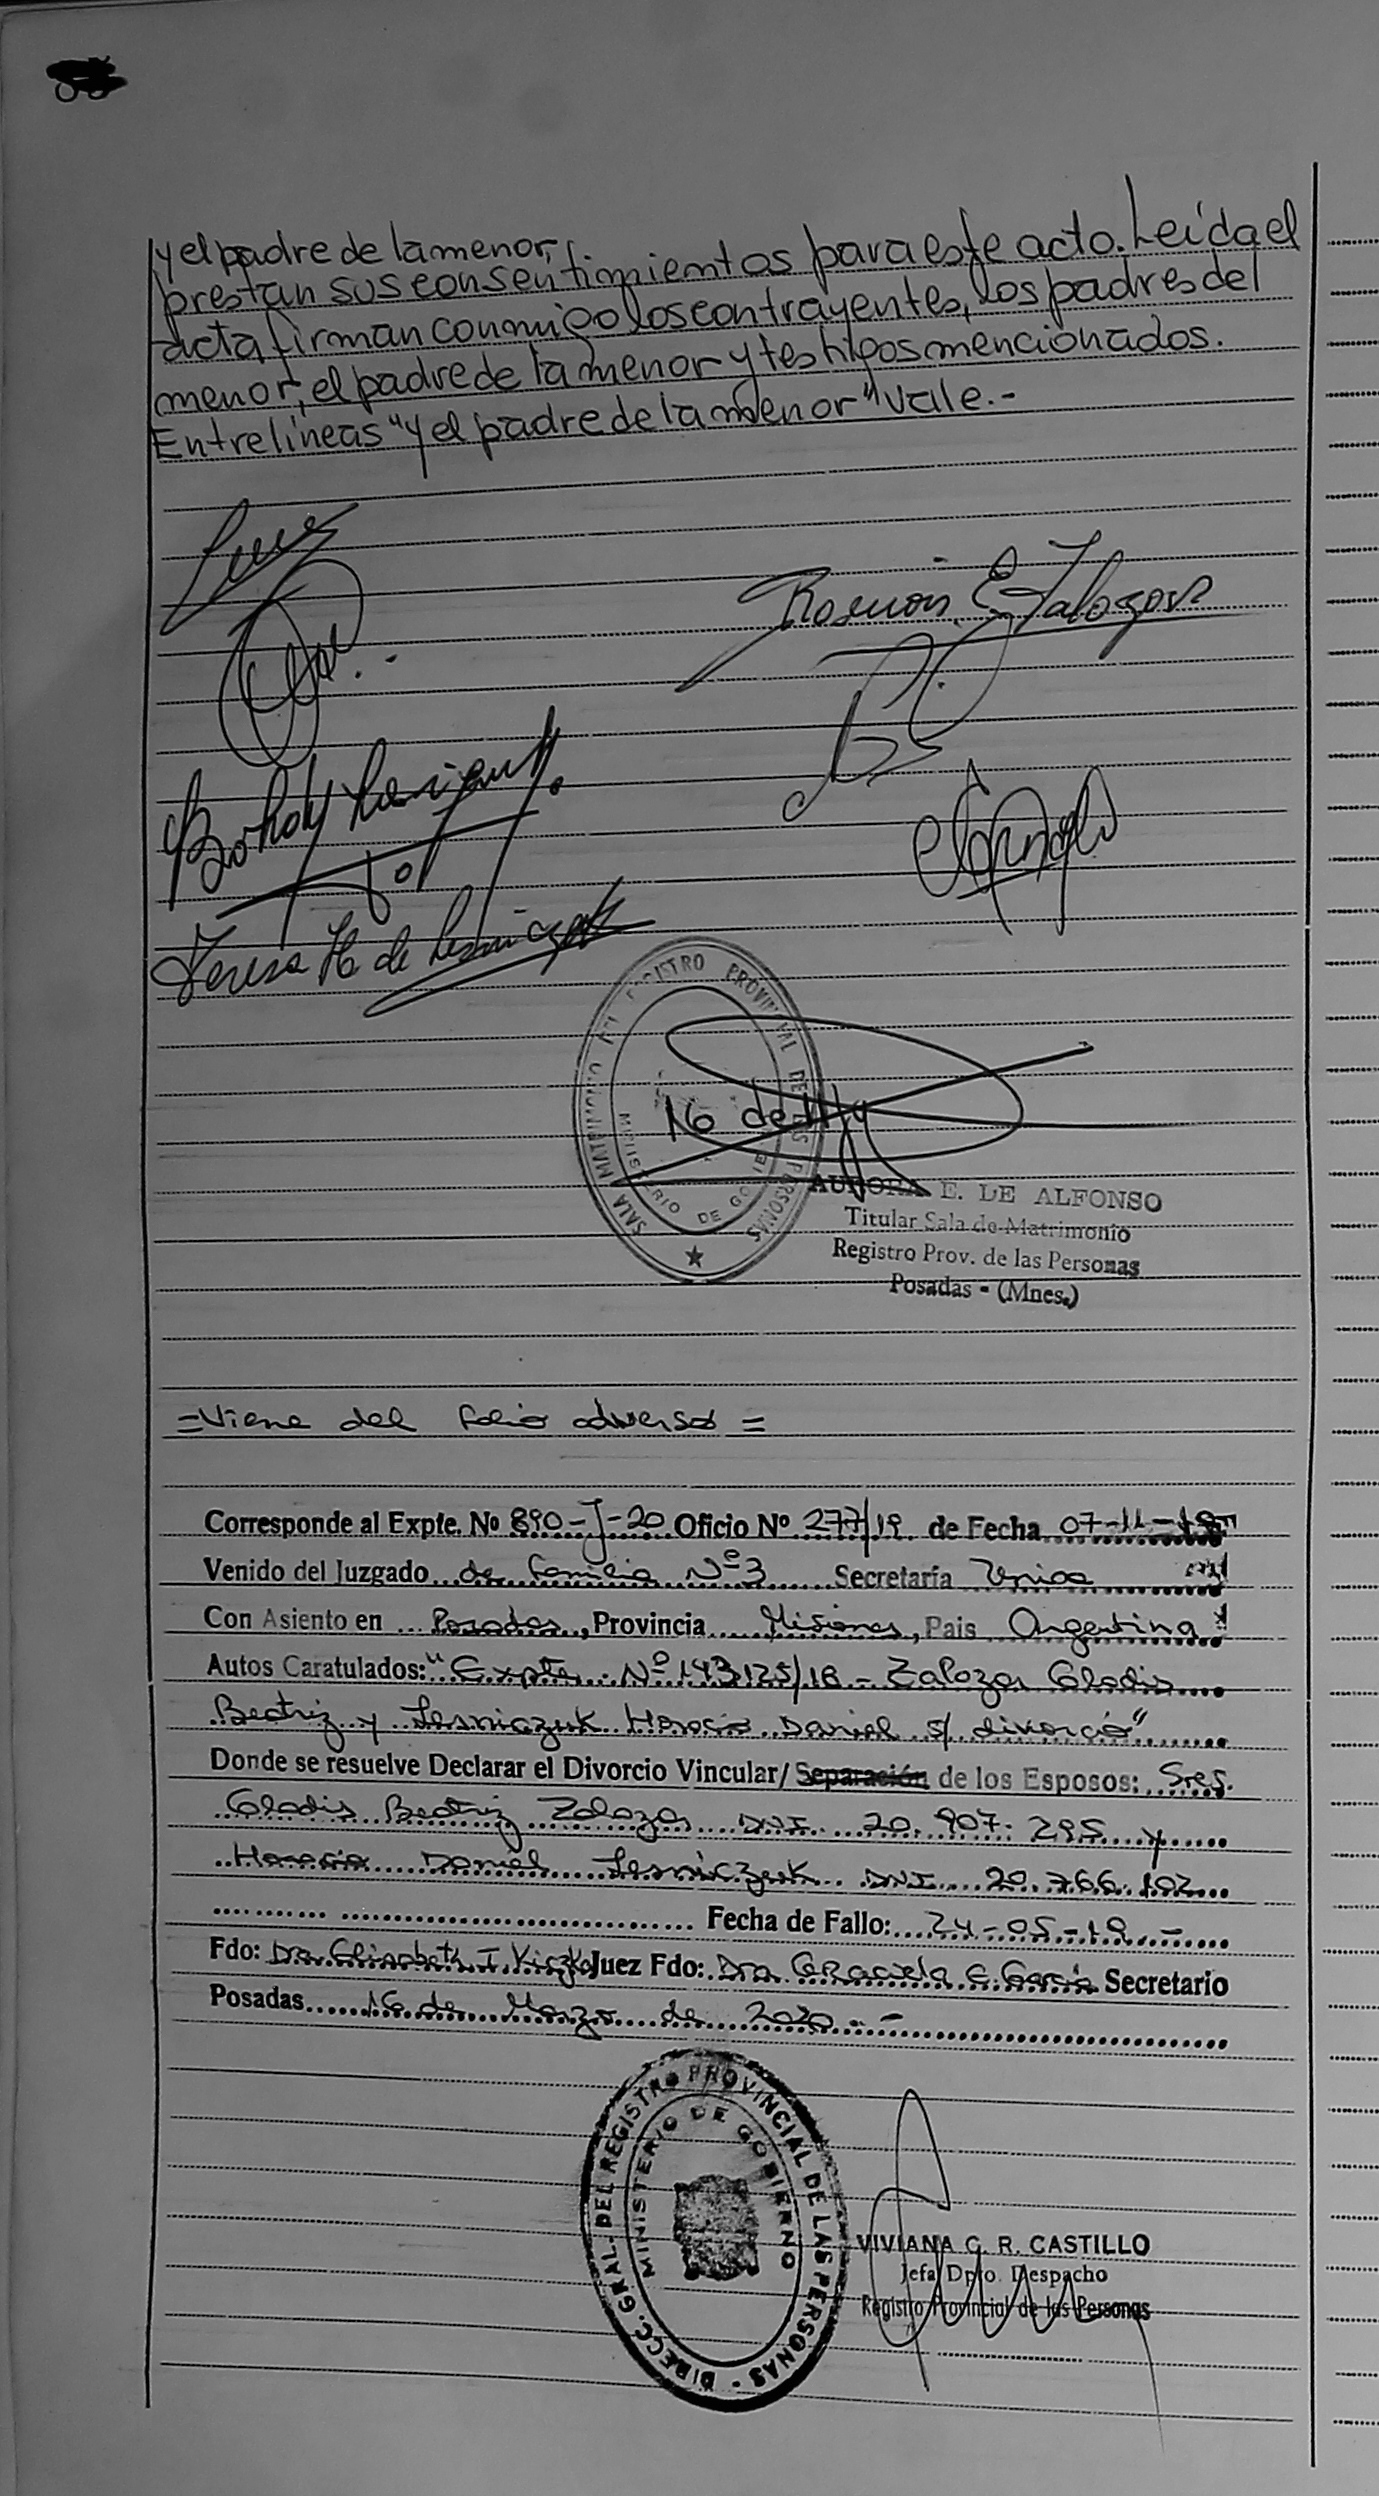 y el padre de la menor,
prestan sus consentimientos para este acto. Leída el
acta firman conmigo los contrayentes, los padres del
menor, el padre de la menor y testigos mencionados.
Entrelíneas "y el padre de la menor" vale.-
Teresa H de Lesniczuk
SALA MATRIMONIO DEL REGISTRO PROVINCIAL DE LAS PERSONAS
MINISTERIO DE GOBIE
16 de
AURORA E. DE ALFONSO
Titular Sala de Matrimonio
Registro Prov. de las Personas
Posadas - (Mnes.)
=Viene del folio adverso=
Corresponde al Expte. Nº 890-J-20 Oficio Nº 277/19 de Fecha 07-11-19
Venido del Juzgado de Familia Nº3 Secretaría Unica
Con Asiento en Posadas, Provincia Misiones, Pais Argentina
Autos Caratulados: "Expte. Nº 143125/18 - Zalozar Gladis
Beatriz y Lesniczuk Horacio Daniel s/ divorcio"
Donde se resuelve Declarar el Divorcio Vincular/ Separación de los Esposos: Sres.
Gladis Beatriz Zalozar DNI 20.907.295 y
Horacio Daniel Lesniczuk DNI 20.766.102
Fecha de Fallo: 24-05-19.-
Fdo: Dra. Elisabeth I. Kiczka Juez Fdo: Dra Graciela E. García Secretario
Posadas 16 de Marzo de 2020.-
DIRECC. GRAL. DEL REGISTRO PROVINCIAL DE LAS PERSONAS
MINISTERIO DE GOBIERNO
VIVIANA G. R. CASTILLO
Jefa Dpto. Despacho
Registro Provincial de las Personas